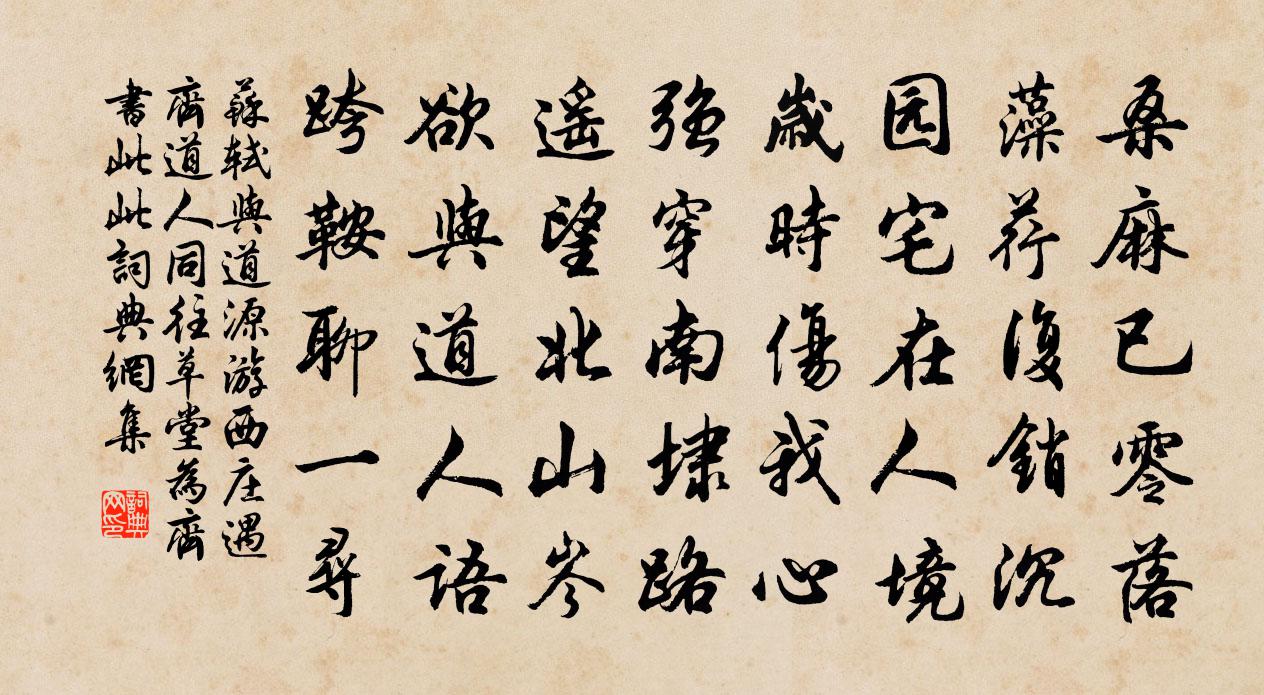 桑麻已零落
藻荇復銷沉
园宅在人境
歲時傷我心
强穿南埭路
遥望北山岑
欲與道人語
跨鞍聊一尋
蘇軾與道源游西庄遇
齊道人同往草堂為齊
書此此詞典網集
詞典网印